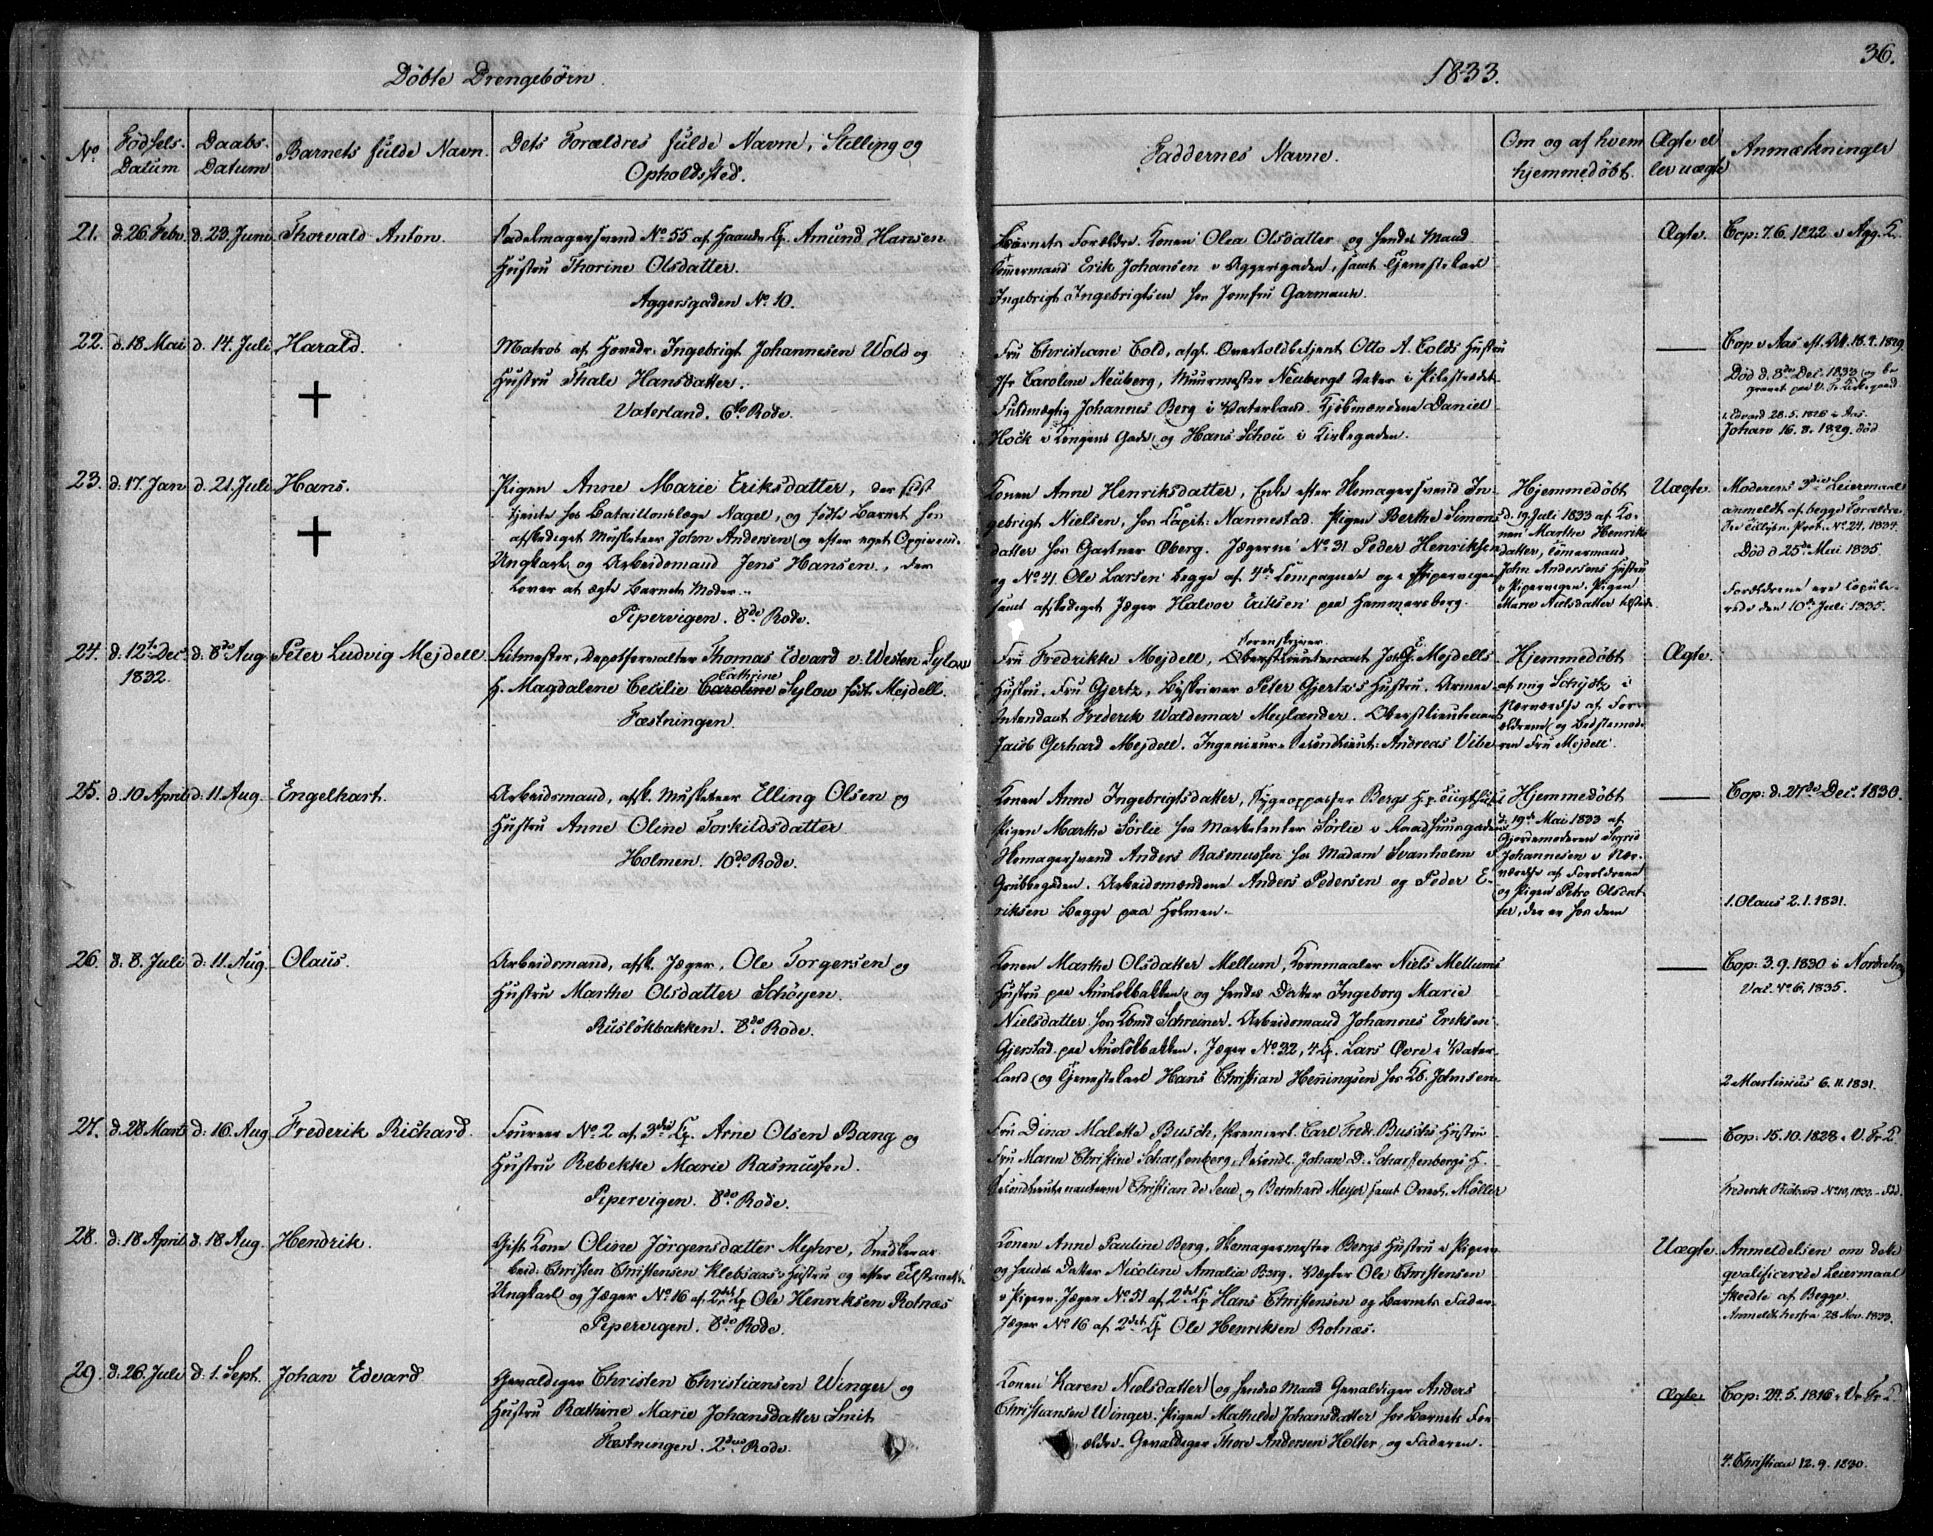 36.
Döbte Drengebörn. 1833.
No.
Födsels-
Datum
Daabs-
Datum
Barnets fulde Navn.
Dets Forældres fulde Navne, Stilling og
Opholdssted.
Faddernes Navne.
Om og af hvem
hjemmedöbt.
Ægte el
ler uægte
Anmærkninger
21. d. 26. Febr. d. 23. Juni Thorvald Anton.
Sadelmagersvend No. 55 af Amund Hansen
Hustru Thorine Olsdatter.
Aggersgaden No. 10.
Barnets Forældre. Konen Olea Olsdatter og hendes Mand
Tömmermand Erik Johansen i Aggersgaden, samt Tjenestekarl
Ingebrigt Ingebrigtsen hos Jomfru Garmann.
Ægte.
Cop: 7.6.1822 i Agg. K.
22. d. 18 Mai d. 14. Juli Harald.
Matros af Hovedr. Ingebrigt Johannesen Wold og
Hustru Thale Hansdatter.
Vaterland. 6te Rode.
Fru Christiane Cold, afgl. Overtoldbetjent Otto A. Colds Hustru
Jfr Caroline Neuberg, Muurmester Neubergs Datter i Pilestrædet
Fuldmægtig Johannes Berg i Vaterland. Kjöbmændene Daniel
Hock i Kongens Gade og Hans Schou i Kirkegaden.
Cop i Aas
Död d. 8de Dec. 1833 og be
gravet paa V. Fr. Kirkegaard
1. Edvard 28.5.1826 i Aas.
Johan 16.8.1829. död
23. d. 17. Jan d. 21. Juli Hans.
Pigen Anne Marie Eriksdatter, der sidst
tjente hos Bataillonslæge Nagel, og födte Barnet hos
afskediget Musketeer John Andersen og efter eget Opgivende
Ungkarl og Arbeidsmand Jens Hansen, der
lover at ægte Barnets Moder.
Pipervigen. 8de Rode.
Konen Anne Henriksdatter, Enke efter Skomagersvend In-
gebrigt Nielsen, hos Capit: Nannestad. Pigen Berthe Simons
datter hos Gartner Öberg. Jægerne No. 31 Peder Henriksen
og No. 41 Ole Larsen begge af 4de Compagnie og i Pipervigen
samt afskediget Jæger Halvor Eriksen paa Hammersborg.
Hjemmedöbt
d. 19 Juli 1833 af Ko-
nen Marthe Henriks
datter, Tömmermand
John Andersens Hustru
i Pipervigen. Pigen
Marie Nielsdatter tilstede.
Uægte.
Moderens 3die Leiermaal
anmeldt af begge Forældre
Prot. No. 24. 1834.
Död d 25de Mai 1835.
Forældrene ere Copule-
rede den 10de Juli 1835.
24. d. 12te Dec. 1832. d. 8de Aug Peter Ludvig Mejdell
Ritmester, Depotforvalter Thomas Edvard v. Westen Sylow
H. Magdalene Cecilie Caroline Cathrine Sylow föd: Mejdell.
Fæstningen.
Fru Fredrikke Mejdell, Sorenskriver Oberstlieutenant Mejdells
Hustru. Fru Gjertz, Byskriver Peter Gjertz's Hustru. Armee
Intendant Frederik Waldemar Meylænder. Oberstlieutenant
Jacob Gerhard Mejdell. Ingenieur-Secondlieut: Andreas Vibe
Hjemmedöbt
af mig Schydtz i
Nærværelse af For-
ældrene og Bedstemode
ren Fru Mejdell.
Ægte.
25. d. 10 April d. 11 Aug. Engelhart.
Arbeidsmand, afsk. Musketeer Elling Olsen og
Hustru Anne Oline Torkildsdatter
Holmen. 10de Rode.
Konen Anne Ingebrigtsdatter, Sygeopasser Bergs H. p. Tugthuset
Pigen Marthe Sörlie hos Marketenter Sörlie i Raadhuusgaden
Skomagersvend Anders Rasmussen hos Madam Svanholm i
Grubbegaden. Arbeidsmændene Anders Pedersen og Peder E-
riksen begge paa Holmen.
Hjemmedöbt
d. 19de Mai 1833 af
Gjordemoderen Sigrid
Johannesen i Nær-
værelse af Forældrene
og Pigen Petro Olsdat-
ter, der er hos dem
Cop: d. 27de Dec. 1830.
1. Olaus 2.1.1831.
26. d: 8. Juli d: 11. Aug. Olaus.
Arbeidsmand, afsk. Jæger, Ole Torgersen og
Hustru Marthe Olsdatter Schöyen.
Ruslökbakken. 8de Rode.
Konen Marthe Olsdatter Mellum, Kornmaaler Niels Mellums
Hustru paa Ruslökbakken og hendes Datter Ingeborg Marie
Nielsdatter hos Kbmd Schreiner. Arbeidsmand Johannes Eriksen
Gjerstad paa Ruslökbakken. Jæger No. 32, 4 Cp. Lars Övre i Vater-
land og Tjenestekarl Hans Christian Henningsen hos Kb. Johnsen.
Cop: 3.9.1830 i Norderhov
Vac. No 6. 1835.
2 Martinius 6.11.1831.
27. d. 28 Marts d: 16. Aug Frederik Richard.
Foureer No. 2 af 3die Cp. Arne Olsen Bang og
Hustru Rebekke Marie Rasmussen.
Pipervigen. 8de Rode.
Fru Dina Malette Busch, Premierl. Carl Fredr. Buschs Hustru
Fru Maren Christine Scharffenberg, Secondl. Johan D. Scharffenbergs H.
Secondlieutenanterne Christian de Seue og Bernhard Meyer samt Möller
Cop: 15.10.1828 i V. Fr. K.
Frederik Richard No 10, 1832
28. d: 18 April. d. 18 Aug. Hendrik.
Gift Kone Oline Jörgensdatter Myhre, Snedkerar
beid. Christen Christensen Klebsaas's Hustru og efter
Ungkarl og Jæger No. 16 af 2det Cp Ole Henriksen Rotnæs
Pipervigen. 8de Rode.
Konen Anne Pauline Berg, Skomagermester Bergs Hustru i Piperv.
og hendes Datter Nicoline Amalia Berg. Vægter Ole Christensen
i Piperv. Jæger No. 51 af 2det Cp Hans Christensen og Barnets Fader
Jæger No 16 af 2det Cp Ole Henriksen Rotnæs.
Uægte.
Anmeldelsen om dette
qvalificerede Leiermaal
skeedte af Begge.
Anmeldt herfra 28 Nov. 1833.
29. d: 26. Juli d: 1. Sept. Johan Edvard
Gevaldiger Christen Christiansen Winger og
Hustru Kathine Marie Johansdatter Smit
Fæstningen. 2den Rode.
Konen Karen Nielsdatter og hendes Mand Gevaldiger Anders
Christiansen Winger. Pigen Mathilde Johansdatter hos Barnets For-
ældre. Gevaldiger Thore Andersen Holter, og Faderen.
Ægte.
Cop: 21.5.1816 i Vr. Fr. K.
4. Christian 12.9.1830.